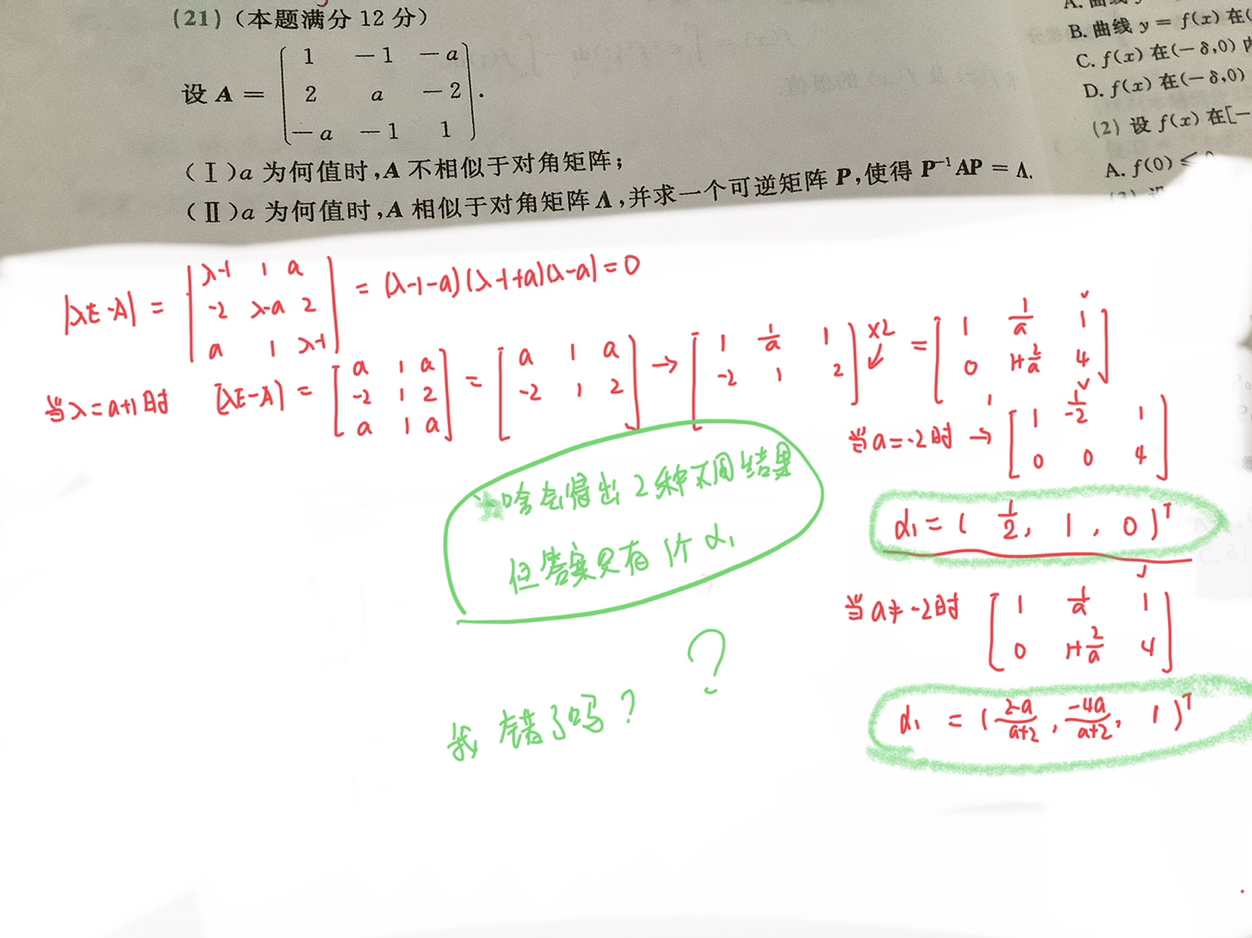 (21)(本题满分 12 分)
设 A = ( 1 -1 -a
2 a -2
-a -1 1 ).
(Ⅰ)a 为何值时,A 不相似于对角矩阵;
(Ⅱ)a 为何值时,A 相似于对角矩阵 Λ,并求一个可逆矩阵 P,使得 P⁻¹AP = Λ.
B. 曲线 y = f(x) 在(
C. f(x) 在(-δ,0) 内
D. f(x) 在(-δ,0)
(2) 设 f(x) 在[-
A. f(0) ≤
|λE-A| = | λ-1 1 a
-2 λ-a 2
a 1 λ-1 | = (λ-1-a)(λ-1+a)(λ-a)=0
当λ=a+1时 [λE-A] = [ a 1 a
-2 1 2
a 1 a ] = [ a 1 a
-2 1 2 ] → [ 1 1/a 1
-2 1 2 ] ×2 = [ 1 1/a 1
0 1+2/a 4 ]
当a=-2时 → [ 1 1/-2 1
0 0 4 ]
α₁ = ( 1/2, 1, 0)ᵀ
当a≠-2时 [ 1 1/a 1
0 1+2/a 4 ]
α₁ = ( 2-a/a+2, -4a/a+2, 1 )ᵀ
啥会得出2种不同结果
但答案只有1个α₁
我错了吗?
?